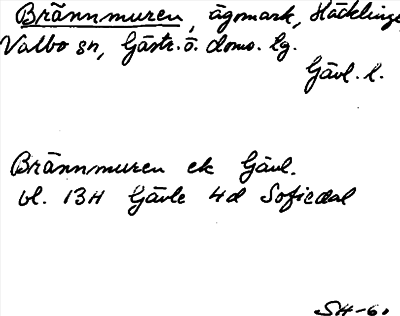 Brännmuren, ägomark, Häcklinge,
Valbo sn, Gästr. ö. doms. lg.
Gävl. l.
Brännmuren ek Gävl.
bl. 13H Gävle 4d Sofiedal
SH-60